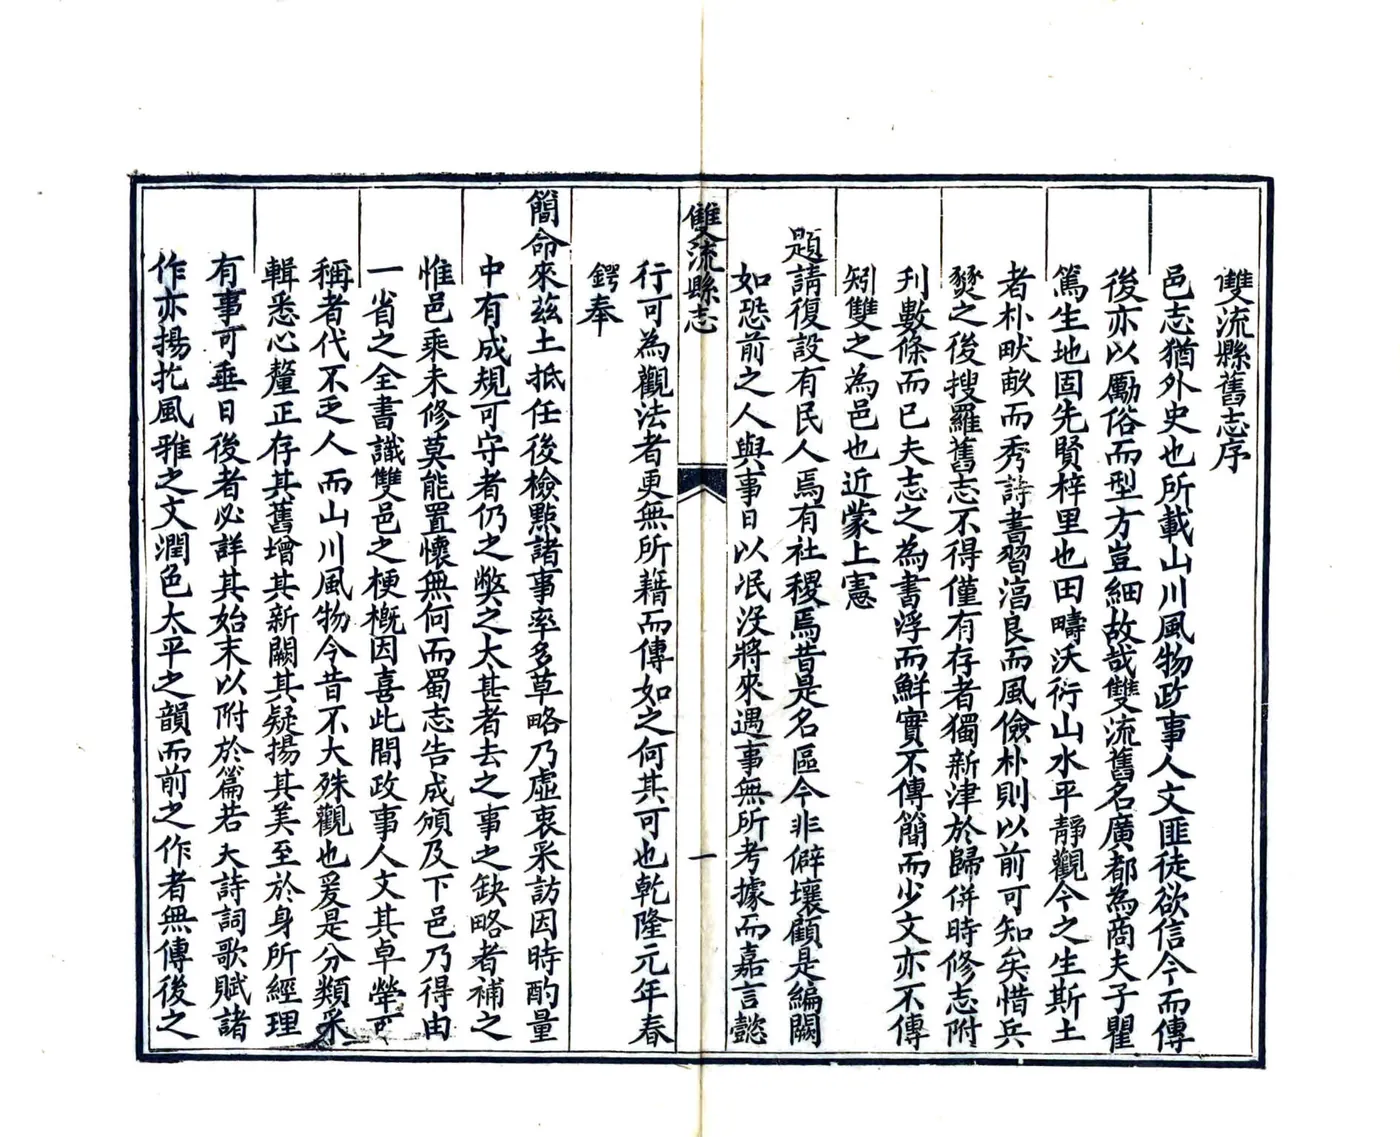 雙流縣舊志序
邑志猶外史也所載山川風物政事人文匪徒欲信今而傳
後亦以勵俗而型方豈細故哉雙流舊名廣都為商夫子瞿
篤生地固先賢梓里也田疇沃衍山水平靜觀今之生斯土
者朴畎畝而秀詩書習湻良而風儉朴則以前可知矣惜兵
燹之後搜羅舊志不得僅有存者獨新津於歸併時修志附
刋數條而已夫志之為書浮而鮮實不傳簡而少文亦不傳
矧雙之為邑也近蒙上憲
題請復設有民人焉有社稷焉昔是名區今非僻壤顧是編闕
如恐前之人與事日以泯沒將來遇事無所考據而嘉言懿
雙流縣志
一
行可為觀法者更無所藉而傳如之何其可也乾隆元年春
鍔奉
簡命來茲土抵任後檢點諸事率多草略乃虛衷采訪因時酌量
中有成規可守者仍之獘之太甚者去之事之缺略者補之
惟邑乘未修莫能置懷無何而蜀志告成頒及下邑乃得由
一省之全書識雙邑之梗概因喜此間政事人文其卓犖可
稱者代不乏人而山川風物今昔不大殊觀也爰是分類采
輯悉心釐正存其舊增其新闕其疑揚其美至於身所經理
有事可垂日後者必詳其始末以附於篇若夫詩詞歌賦諸
作亦揚扢風雅之文潤色太平之韻而前之作者無傳後之